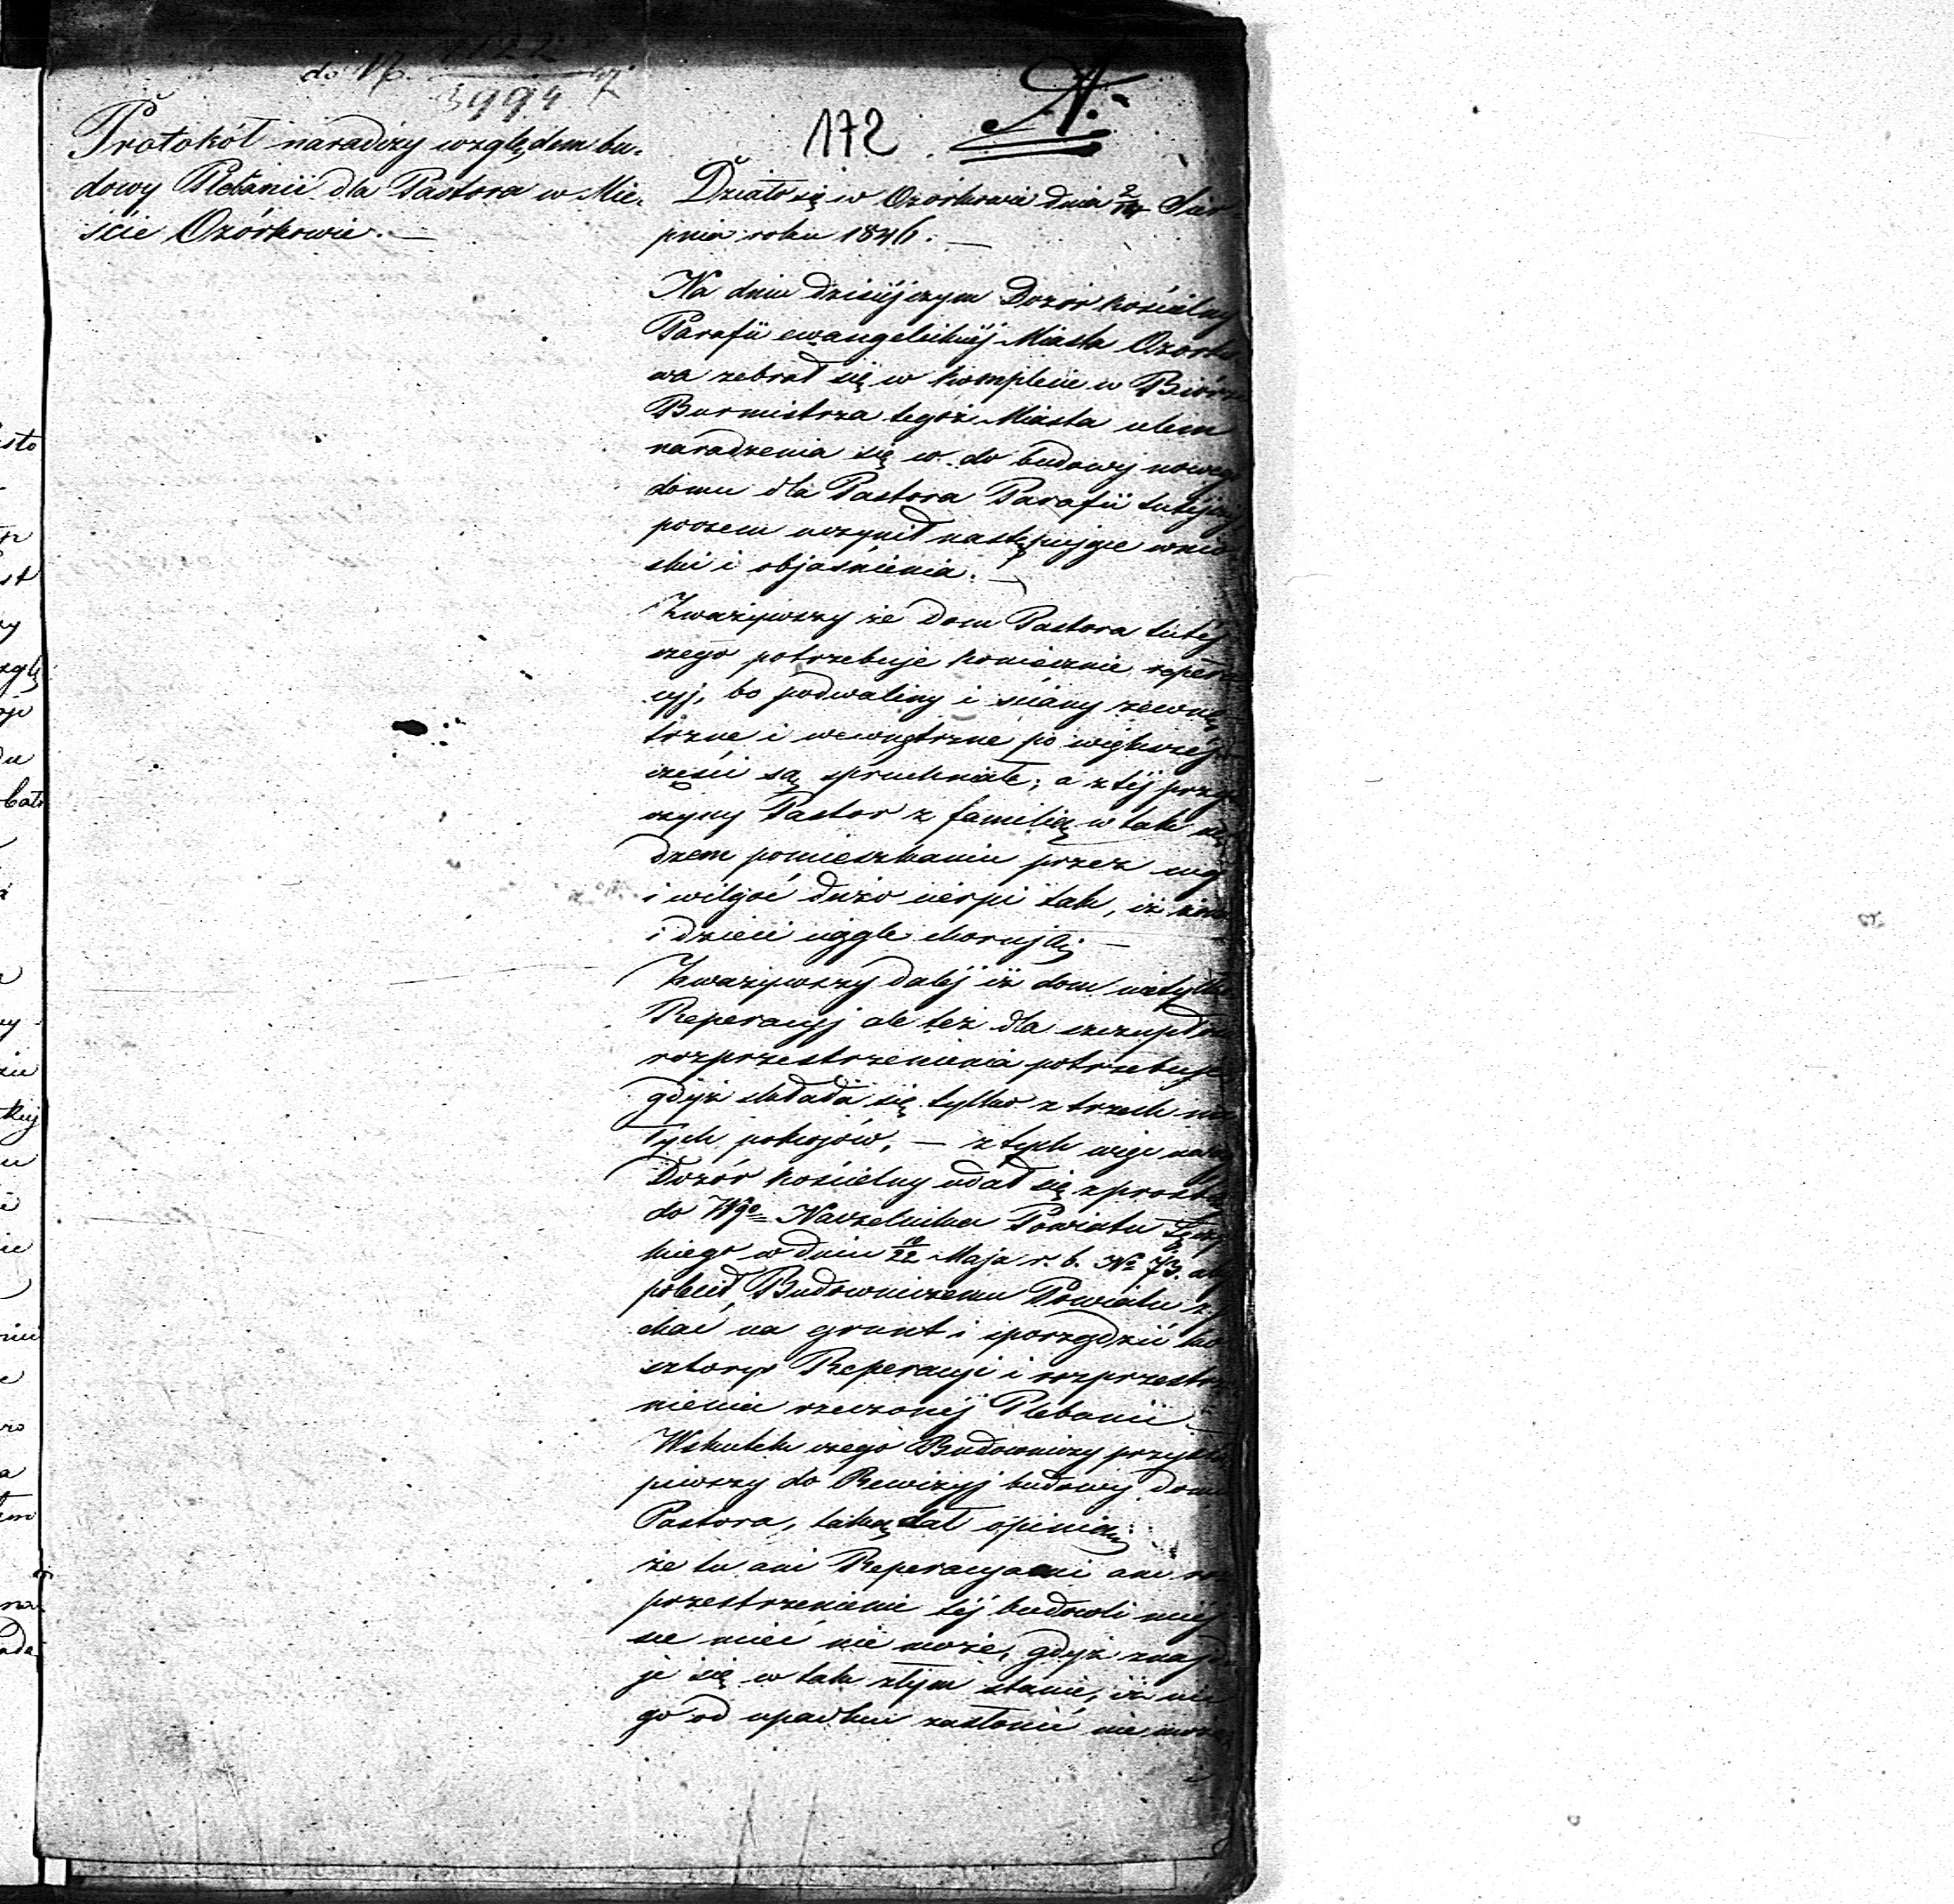 do N. 1122
3994
A.
172
Protokół naradczy względem bu-
dowy Plebanii dla Pastora w Mie-
ście Ozórkowie. —
Działo się w Ozorkowie dnia 2/14 Sier-
pnia roku 1846. —
Na dniu dzisiejszym Dozór kościelny
Parafii ewangelickiéj Miasta Ozorko
wa zebrał się w komplecie w Biórze
Burmistrza tegoż Miasta celem
naradzenia się w. do budowy nowego
domu dla Pastora Parafii tutéjszej
poczem uczynił następujące wnio-
ski i objaśnienia. —
Zważywszy że Dom Pastora tutéj
szego potrzebuje koniecznie repera
cyj, bo podwaliny i sciany zewnę
trzne i wewnętrzne po większéj
części są spruchniałe; a z téj przy
czyny Pastor z familią w tak nę
dzem pomieszkaniu przez
i wilgoć dużo cierpi tak, iż żona
i dzieci ciągle chorują —
Zważywszy daléj iż dom nietylko
Reperacyj ale też dla szczupłości
rozprzestrzenienia potrzebuje
gdyż składa się tylko z trzech ma
łych pokojów, — z tych więc
Dozór kościelny udał się z prośbą
do Wgo Naczelnika Powiatu Łęczyc
kiego w dniu 10/22 Maja r. b. No 73. aby
polecił Budowniczemu Powiatu zje
chać na grunt i sporządzić ko
sztorys Reperacyi i rozprzestrze
nienia rzeczonéj Plebanii —
Wskutek czego Budowniczy przystą
piwszy do Rewizyj budowy domu
Pastora, taką dał opinią:
że tu ani Reperacya ani roz
przestrzenienie téj budowli miej
sce mieć nie może, gdyż znajdu
je się w tak złym stanie, iż nic
go od upadku zasłonić nie może